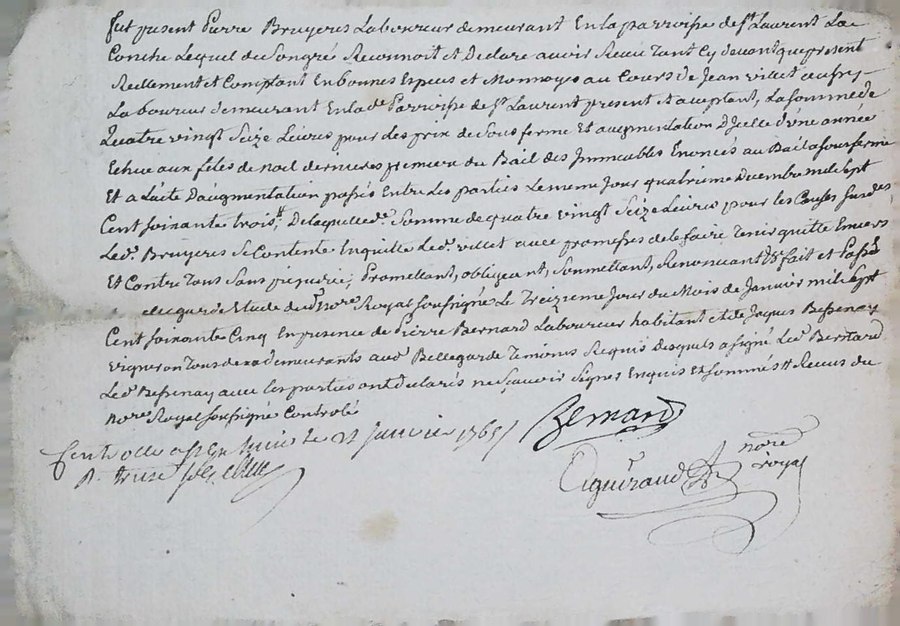 fut present Pierre Bruyeres Laboureur demeurant En la parroisse de St. Laurent La
Conche Lequel de son gré Reconnoit et Declare avoir Recu Tant Cy devant que présent
Reellement et Comptant En bonnes Especes et Monnoyes au Cours de Jean villet
Laboureur demeurant En lad. Parroisse de St. Laurent présent et aceptant, La somme de
Quatre vingt Seize Livres pour des prix de sous ferme Et augmentation D'Jcelle d'une année
Echue aux fêtes de noel dernieres premiere du Bail des Immeubles Enoncés au Bail a sousferme
Et a L'acte D'augmentation passés Entre Les parties Le meme Jour quatrieme Decembre mil sept
Cent soixante trois; De laquelle d. Somme de quatre vingt Seize Livres pour les Causes susd.es
Led. Bruyeres se Contente En quitte Led. villet avec promesses de le faire Tenir quitte Envers
Et Contre Tous Sans prejudice; Promettant, obligeant, Soummettant, Renonceant &c fait et Passé
Etude du Nore Royal soussigné Le Treizieme Jour du Mois de Janvier mil sept
Cent soixante Cinq En presence de Pierre Bernard Laboureur habitant et de Jaques Bessenay
vigneron Tous deux demeurants aud. Bellegarde Temoins Requis desquels a signé Led. Bernard
Led. Bessenay avec Les parties ont declarés ne sçavoir Signer Enquis Et sommés Recus du
Nore Royal soussigné Controlé
Bernard
Controllé le 21 Janvier 1765
R. treize sols
nore
royal